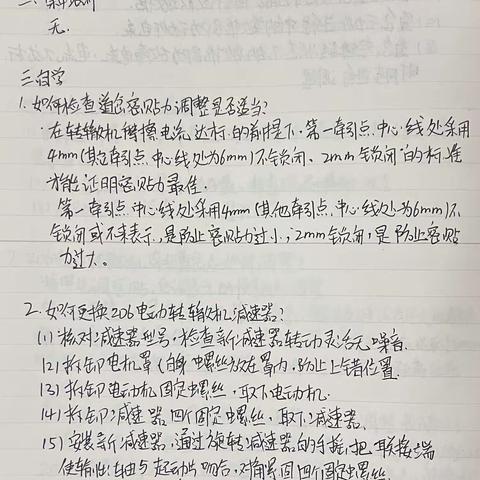 无.
三.自学
1. 如何检查道岔密贴力调整是否适当?
在转辙机摩擦电流达标的前提下,第一牵引点中心线处采用
4mm(其它牵引点中心线处为6mm)不锁闭、2mm锁闭的标准
才能证明密贴力最佳.
第一牵引点中心线处采用4mm(其他牵引点中心线处为6mm)不
锁闭或不来表示,是防止密贴力过小;2mm锁闭,是防止密贴
力过大。
2. 如何更换ZD6电动转辙机减速器?
(1) 核对减速器型号,检查新减速器转动灵活无噪音.
(2) 拆卸电机罩(自身螺丝放在罩内,防止上错位置.
(3) 拆卸电动机固定螺丝,取下电动机.
(4) 拆卸减速器四个固定螺丝,取下减速器.
(5) 安装新减速器,通过旋转减速器的手摇把联接端
使输出轴与起动片吻合,对角紧固四个固定螺丝.